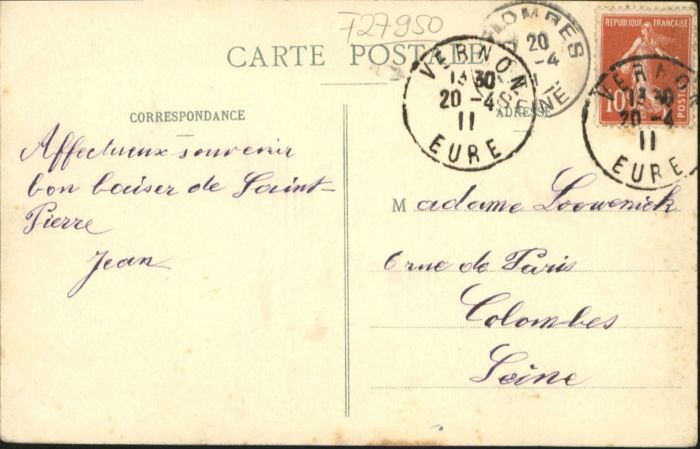 727950
CARTE POSTALE
CORRESPONDANCE
Affectueux souvenir
bon baiser de Saint-
Pierre
Jean
ADRESSE
Madame Loowenick
6 rue de Paris
Colombes
Seine
VERNON
13 30
20 - 4
11
EURE
COLOMBES
20
-4
SEINE
REPUBLIQUE FRANÇAISE
10
VERNON
13 30
20 - 4
11
EURE